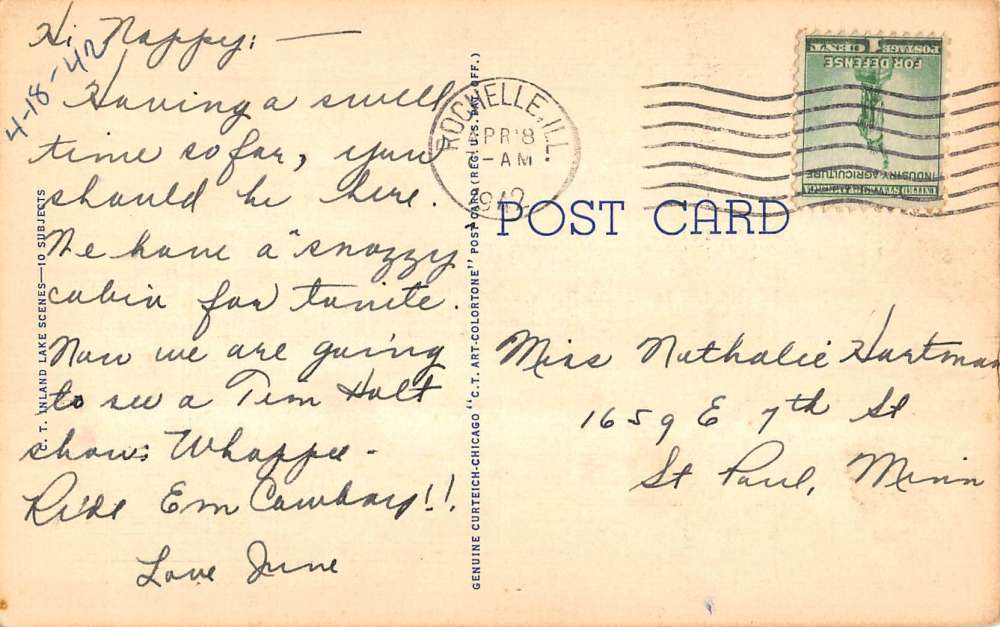 Hi Nappy: —
4-18-42
Having a swell
time so far, you
should be here.
We have a "snazzy
cabin for tonite.
Now we are going
to see a Tim Holt
show: Whoppee -
Ride Em Cowboy!!
Love June
C. T. INLAND LAKE SCENES—10 SUBJECTS
GENUINE CURTEICH-CHICAGO "C. T. ART-COLORTONE" POST CARD (REG. U.S. PAT. OFF.)
ROCHELLE, ILL.
APR 18
-AM
1942
POST CARD
UNITED STATES OF AMERICA
INDUSTRY AGRICULTURE
FOR DEFENSE
POSTAGE 1 CENT
Miss Nathalie Hartman
1659 E 7th St
St Paul, Minn